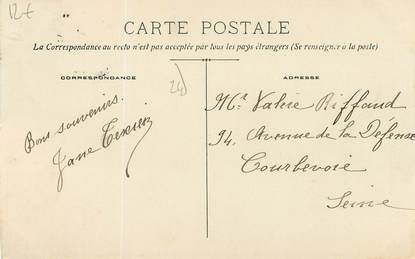 12€
CARTE POSTALE
La Correspondance au recto n'est pas acceptée par tous les pays étrangers (Se renseigner à la poste)
CORRESPONDANCE
24
Bons souvenirs.
Jane Texier
ADRESSE
Mr Valére Riffaud
94, Avenue de la Défense
Courbevoie
Seine